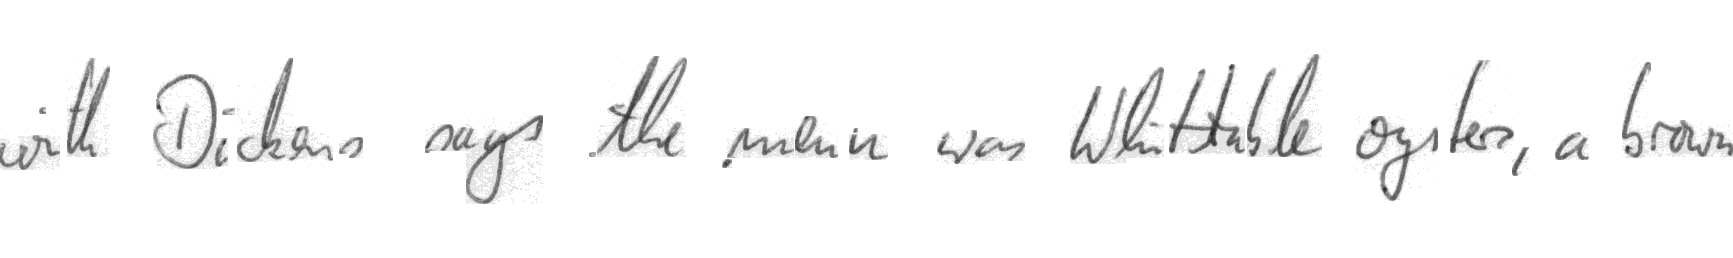 with Dickens says the menu was Whitstable oysters, a brown